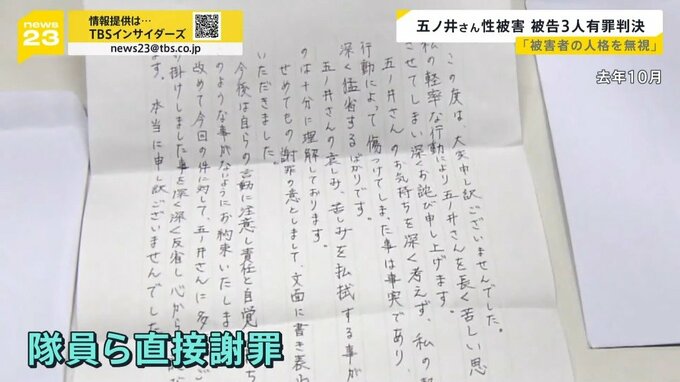 news
23
情報提供は…
TBSインサイダーズ
news23@tbs.co.jp
五ノ井さん性被害 被告3人有罪判決
「被害者の人格を無視」
去年10月
この度は、大変申し訳ございませんでした。
私の軽率な行動により五ノ井さんを長く苦しい思
させてしまい深くお詫び申し上げます。
五ノ井さんのお気持ちを深く考えず、私の
行動によって傷つけてしまった事は事実であり、
深く猛省するばかりです。
五ノ井さんの哀しみ、苦しみを払拭する事が
のは十分に理解しております。
せめてもの謝罪の意としまして、文面に書き表
いただきました。
今後は自らの言動に注意し責任と自覚
のような事がないようにお約束いたしま
改めて今回の件に対して、五ノ井さんに多
け掛けしました事を深く深く反省し心から
ます。本当に申し訳ございませんでした
隊員ら直接謝罪